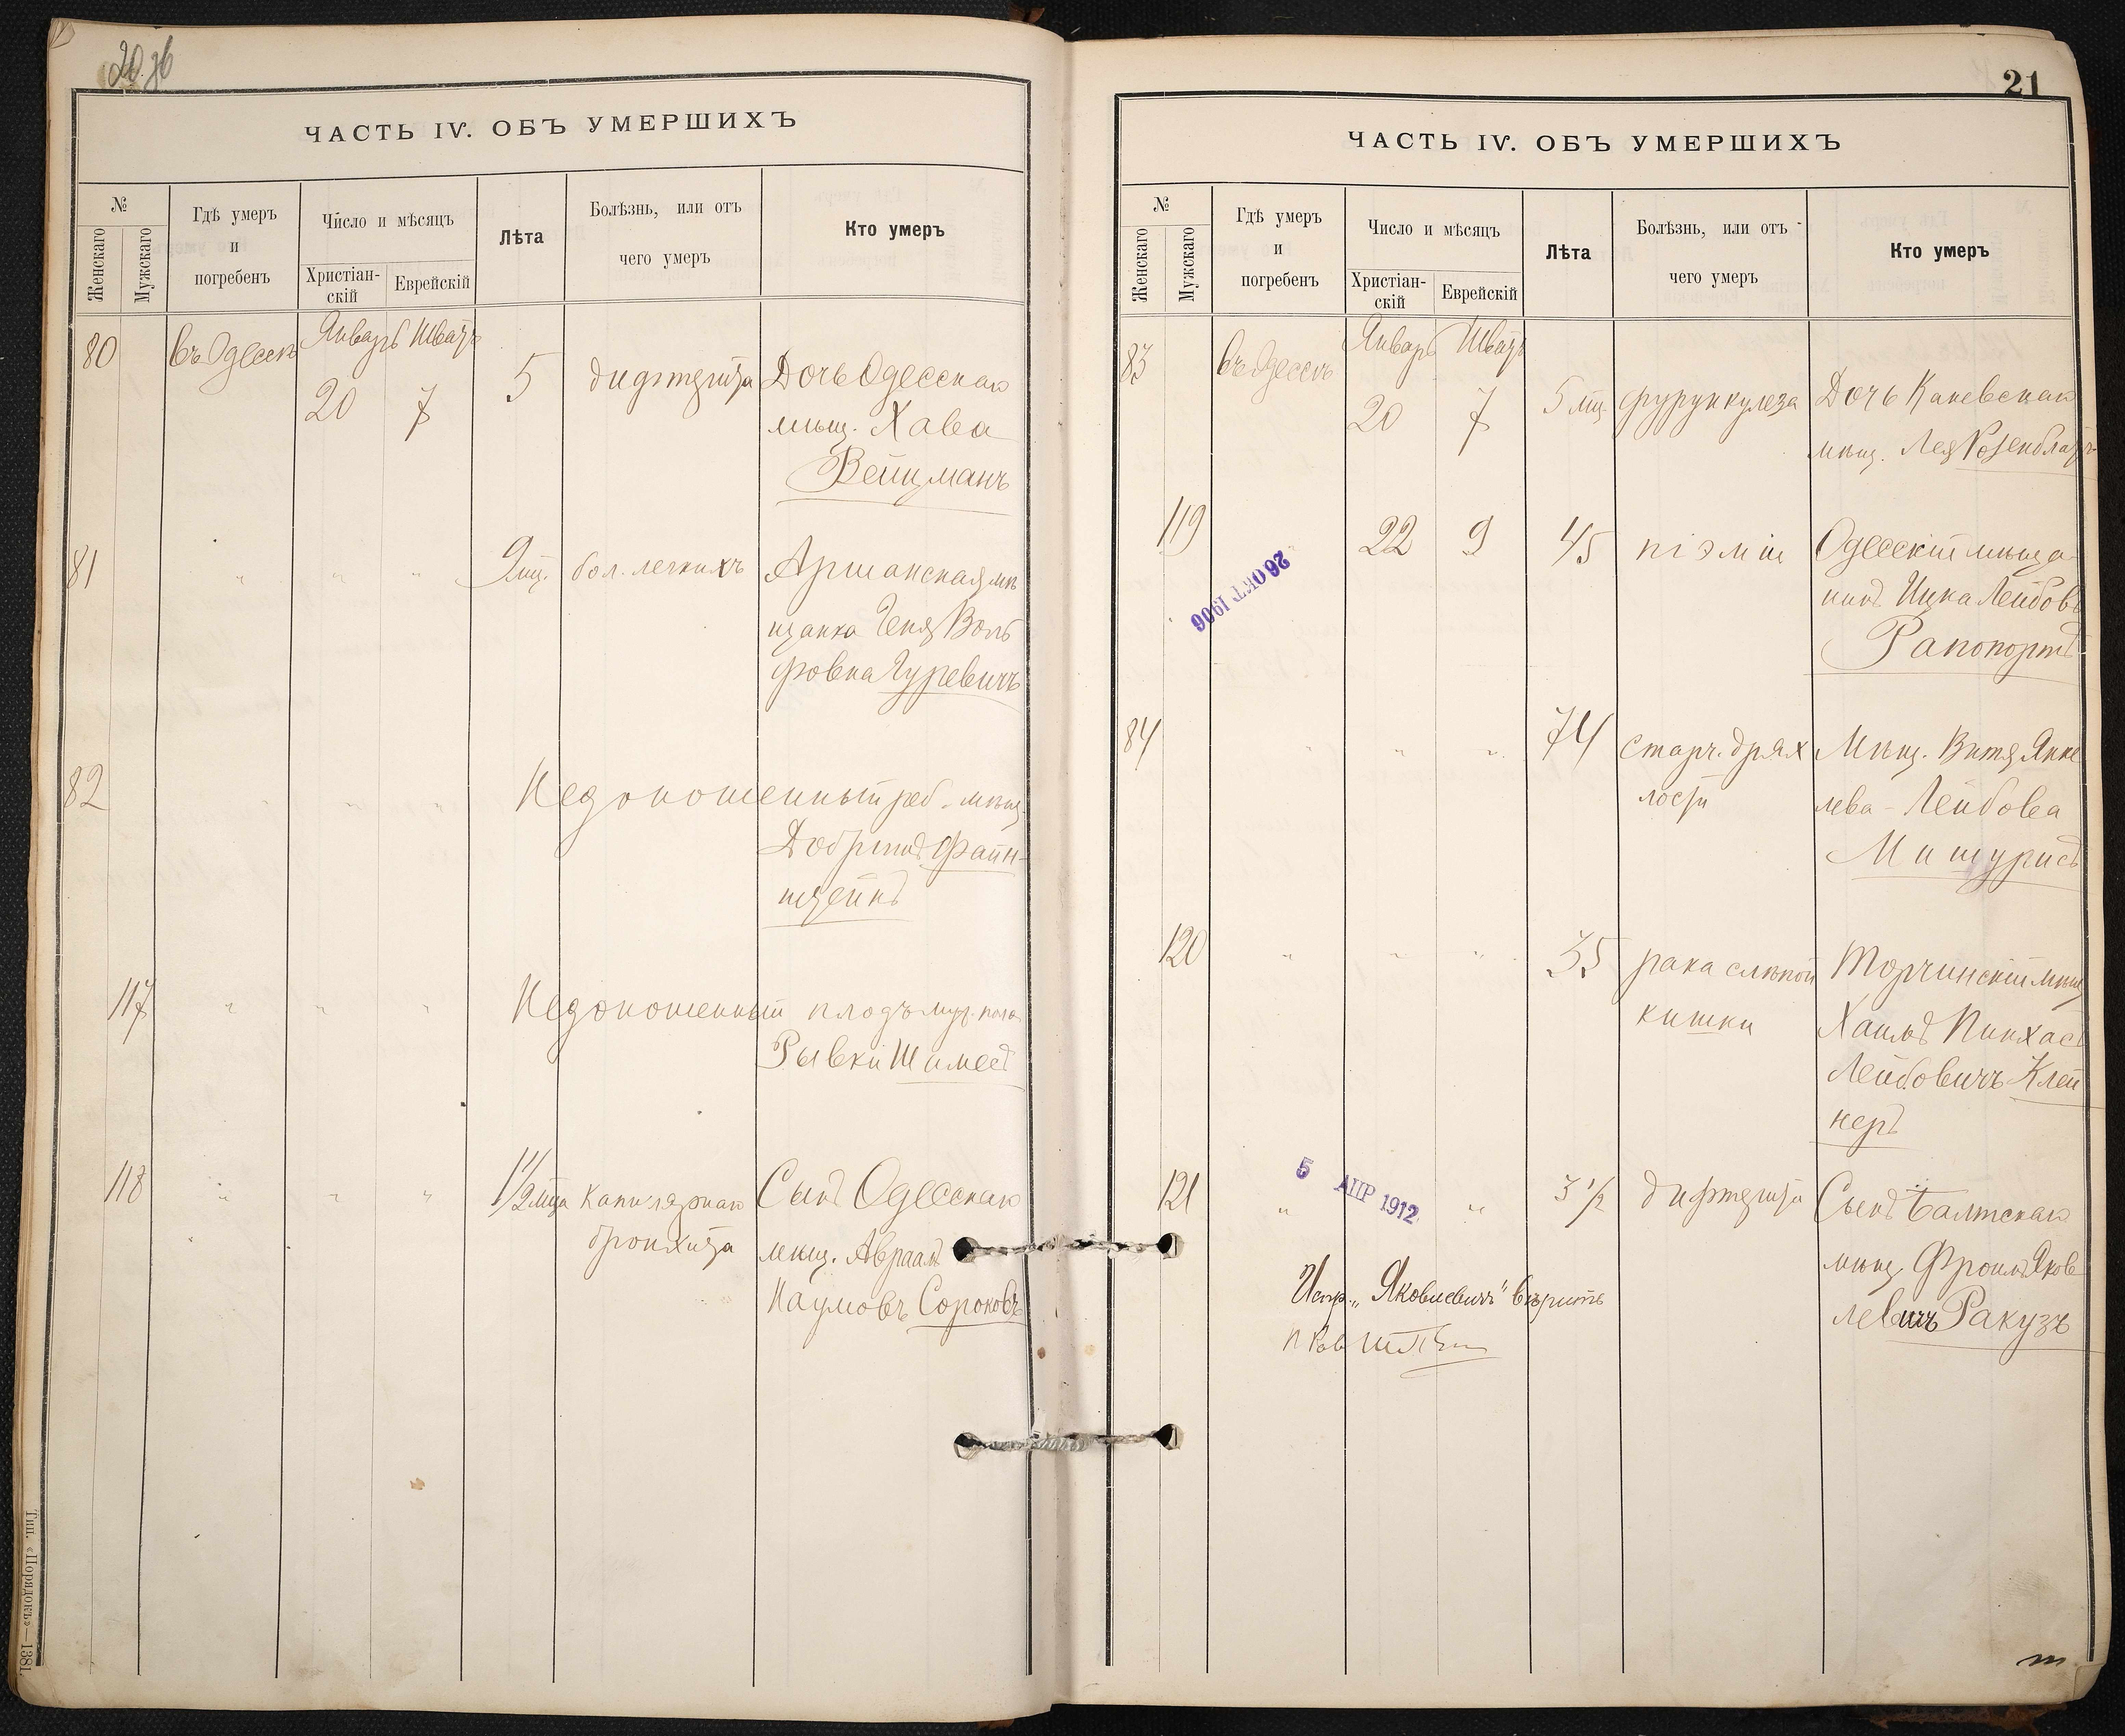 20 об
ЧАСТЬ IV. ОБЪ УМЕРШИХЪ
№
Женскаго
Мужскаго
Гдѣ умеръ
и
погребенъ
Число и мѣсяцъ
Христіан-
скій
Еврейскій
Лѣта
Болѣзнь, или отъ
чего умеръ
Кто умеръ
80 въ Одессѣ Январь Шватъ
20 7 5 дифтерита Дочь Одесскаго
мѣщ. Хава
Вейцманъ
81 " " " 9 мц. бол. легкихъ Аршанская мѣ
щанка Геня Воль
фовна Гуревичъ
82 " " " Недоношенный реб. мѣщ.
Добрыш Файн-
штейнъ
117 " " " Недоношенный плодъ муж. пола
Рывки Шимесъ
118 " " " 1 1/2 мца Капилярнаго Сынъ Одесскаго
бронхита мѣщ. Авраамъ
Наумовъ Сороковъ
Тип. «Порядокъ»—1381.
21
ЧАСТЬ IV. ОБЪ УМЕРШИХЪ
№
Женскаго
Мужскаго
Гдѣ умеръ
и
погребенъ
Число и мѣсяцъ
Христіан-
скій
Еврейскій
Лѣта
Болѣзнь, или отъ
чего умеръ
Кто умеръ
83 въ Одессѣ Январь Шватъ
20 7 5 мц. фурункулеза Дочь Каневскаго
мѣщ. Лея Розенблатъ
119 22 9 45 піэміи Одесскій мѣща
нинъ Ицка Лейбовъ
Рапопортъ
26 ОКТ. 1906
84 " " " 74 старч. дрях Мѣщ. Витя Янке
лости лева - Лейбова
Мишурисъ
120 " " " 35 рака слѣпой Торчинскій мѣщ
кишки Хаимъ Пинхасъ
Лейбовичъ Клей
неръ
5 АПР 1912
121 " " 3 1/2 дифтерита Сынъ Балтскаго
мѣщ. Фроимъ Яков
левичъ Ракузъ
Испр. „Яковлевичъ" вѣрить